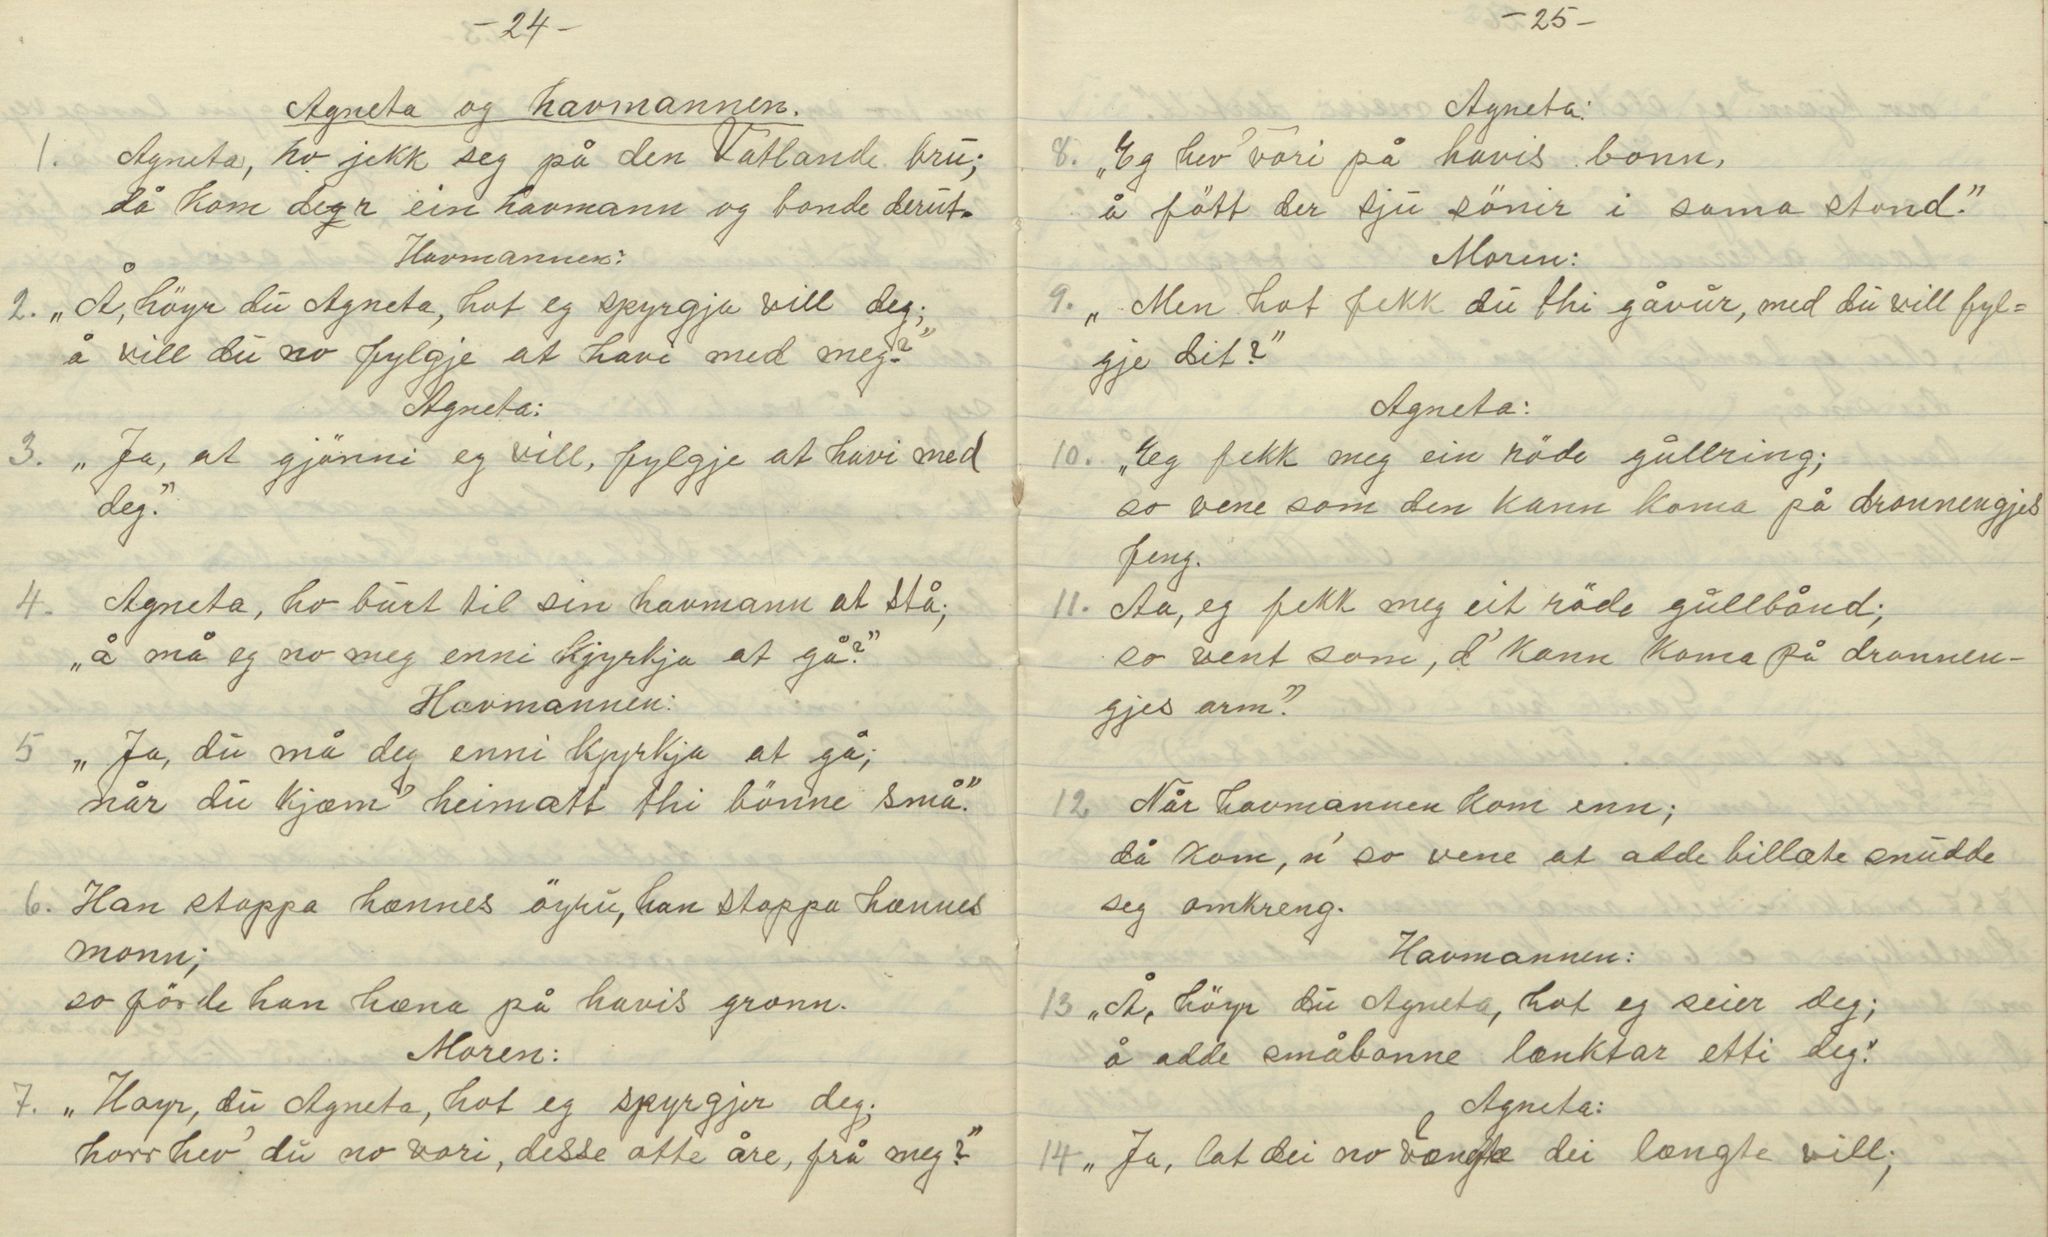 - 24 -
Agneta og havmannen.
1. Agneta, ho jekk seg på den Vatlande bru;
då kom der ein havmann og bonde derut.
Havmannen:
2. „Å, höyr du Agneta, hot eg spyrgja vill deg;
å vill du no fylgje at havi med meg?"
Agneta:
3. „Ja, at gjönni eg vill, fylgje at havi med
deg."
4. Agneta, ho burt til sin havmann at stå;
„å må eg no meg enni kjyrkja at gå?"
Havmannen:
5 „Ja, du må deg enni kjyrkja at gå;
når du kjæm' heimatt thi bönne små."
6. Han stoppa hænnes öyru, han stoppa hænnes
monn;
so förde han hæna på havis gronn.
Moren:
7. „Høyr, du Agneta, hot eg spyrgjer deg;
horr hev' du no vori, desse otte åre, frå meg?"
- 25 -
Agneta:
8. „Eg hev' vori på havis bonn,
å fött der sju sönir i sama stond."
Moren:
9. „Men hot fekk du thi gåvur, med du vill fyl=
gje dit?"
Agneta:
10. „Eg fekk meg ein röde gullring;
so vene som den kann koma på dronnengjes
feng.
11. Aa, eg fekk meg eit röde gullbånd;
so vent som, d' kann koma på dronnen-
gjes arm."
12. Når havmannen kom enn;
då kom, n' so vene at adde billæte snudde
seg omkreng.
Havmannen:
13 „Å, höyr du Agneta, hot eg seier deg;
å adde småbonne lænktar etti deg."
Agneta:
14 „Ja, lat dei no længte dei længte vill;